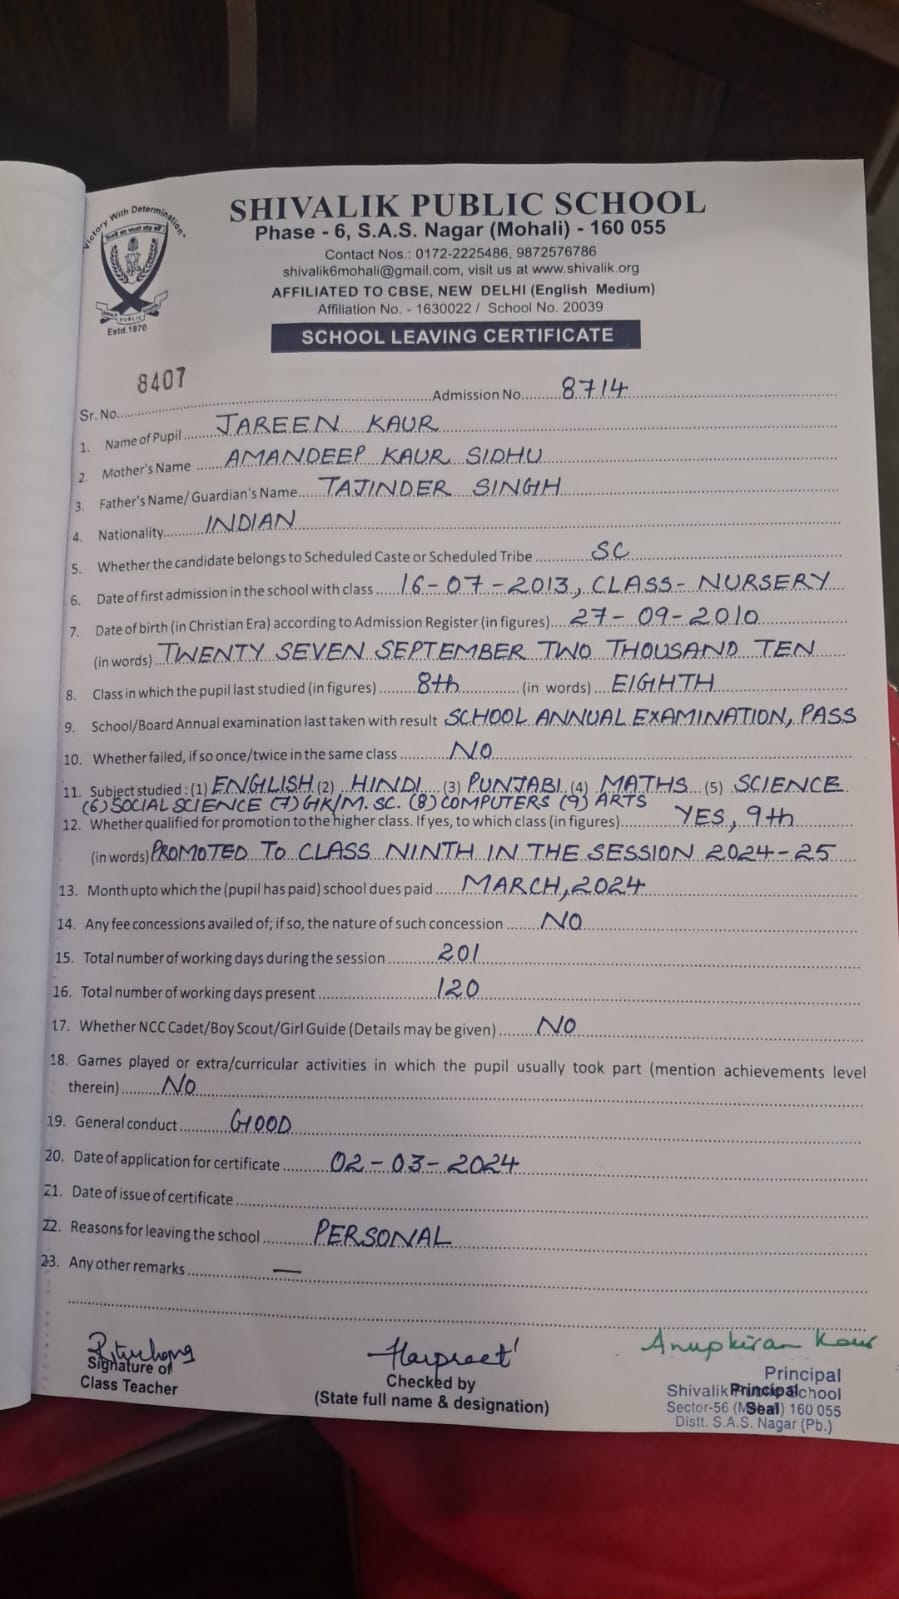 "Victory With Determination"
PUBLIC
Estd.1970
SHIVALIK PUBLIC SCHOOL
Phase - 6, S.A.S. Nagar (Mohali) - 160 055
Contact Nos.: 0172-2225486, 9872576786
shivalik6mohali@gmail.com, visit us at www.shivalik.org
AFFILIATED TO CBSE, NEW DELHI (English Medium)
Affiliation No. - 1630022 / School No. 20039
SCHOOL LEAVING CERTIFICATE
Sr. No. 8407 Admission No. 8714
1. Name of Pupil JAREEN KAUR
2. Mother's Name AMANDEEP KAUR SIDHU
3. Father's Name/ Guardian's Name TAJINDER SINGH
4. Nationality INDIAN
5. Whether the candidate belongs to Scheduled Caste or Scheduled Tribe SC
6. Date of first admission in the school with class 16-07-2013, CLASS- NURSERY
7. Date of birth (in Christian Era) according to Admission Register (in figures) 27-09-2010
(in words) TWENTY SEVEN SEPTEMBER TWO THOUSAND TEN
8. Class in which the pupil last studied (in figures) 8th (in words) EIGHTH
9. School/Board Annual examination last taken with result SCHOOL ANNUAL EXAMINATION, PASS
10. Whether failed, if so once/twice in the same class NO
11. Subject studied : (1) ENGLISH (2) HINDI (3) PUNJABI (4) MATHS (5) SCIENCE
(6) SOCIAL SCIENCE (7) GK/M. SC. (8) COMPUTERS (9) ARTS
12. Whether qualified for promotion to the higher class. If yes, to which class (in figures) YES, 9th
(in words) PROMOTED TO CLASS NINTH IN THE SESSION 2024-25
13. Month upto which the (pupil has paid) school dues paid MARCH, 2024
14. Any fee concessions availed of; if so, the nature of such concession NO
15. Total number of working days during the session 201
16. Total number of working days present 120
17. Whether NCC Cadet/Boy Scout/Girl Guide (Details may be given) NO
18. Games played or extra/curricular activities in which the pupil usually took part (mention achievements level
therein) NO
19. General conduct GOOD
20. Date of application for certificate 02-03-2024
21. Date of issue of certificate
22. Reasons for leaving the school PERSONAL
23. Any other remarks —
Harpreet Anupkiran Kaur
Signature of
Class Teacher
Checked by
(State full name & designation)
Principal
Seal
Principal
Shivalik Public School
Sector-56 (Mohali) 160 055
Distt. S.A.S. Nagar (Pb.)